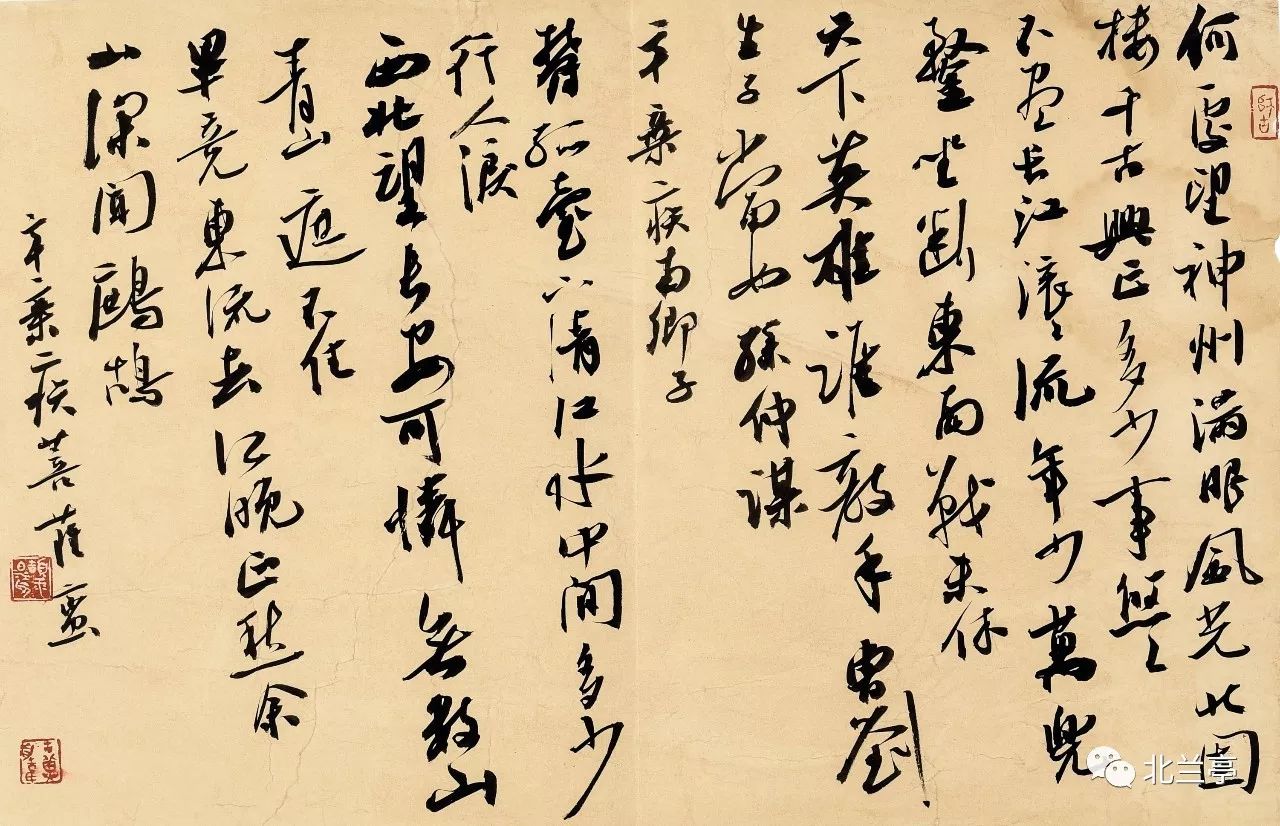 何處望神州滿眼風光北固
樓千古興亡多少事悠〻
不盡長江滾〻流年少萬兜
鍪坐斷東南戰未休
天下英雄誰敵手曹劉
生子當如孫仲謀
辛棄疾南鄉子
鬱孤臺下清江水中間多少
行人淚
西北望長安可憐無數山
青山遮不住
畢竟東流去江晚正愁余
山深聞鷓鴣
辛棄疾菩薩蠻
北兰亭